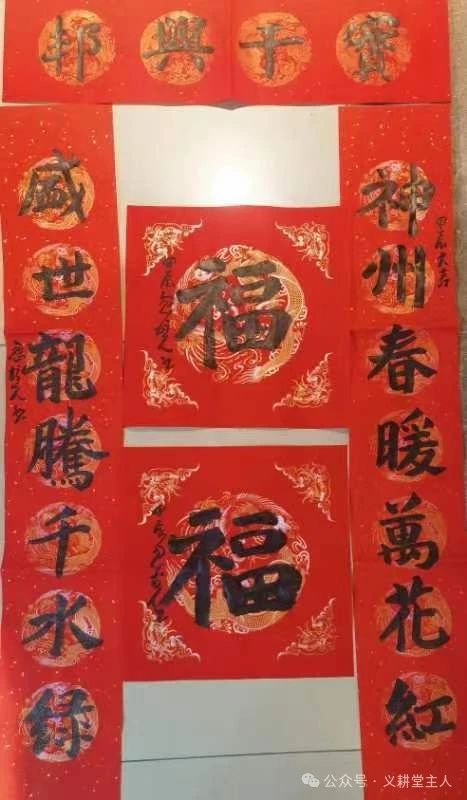 實干興邦
神州春暖萬花紅
甲辰大吉
盛世龍騰千水綠
福
福
公众号 · 义耕堂主人